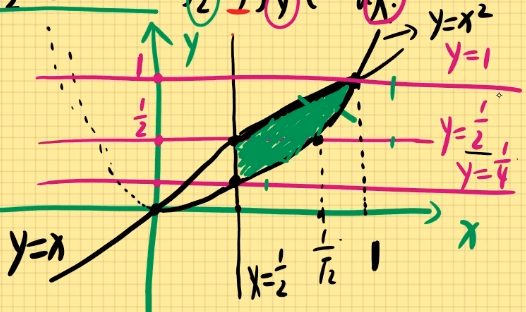 y=x²
y=1
y
1
1/2
y=1/2
y=1/4
x
y=x
x=1/2
1/√2
1